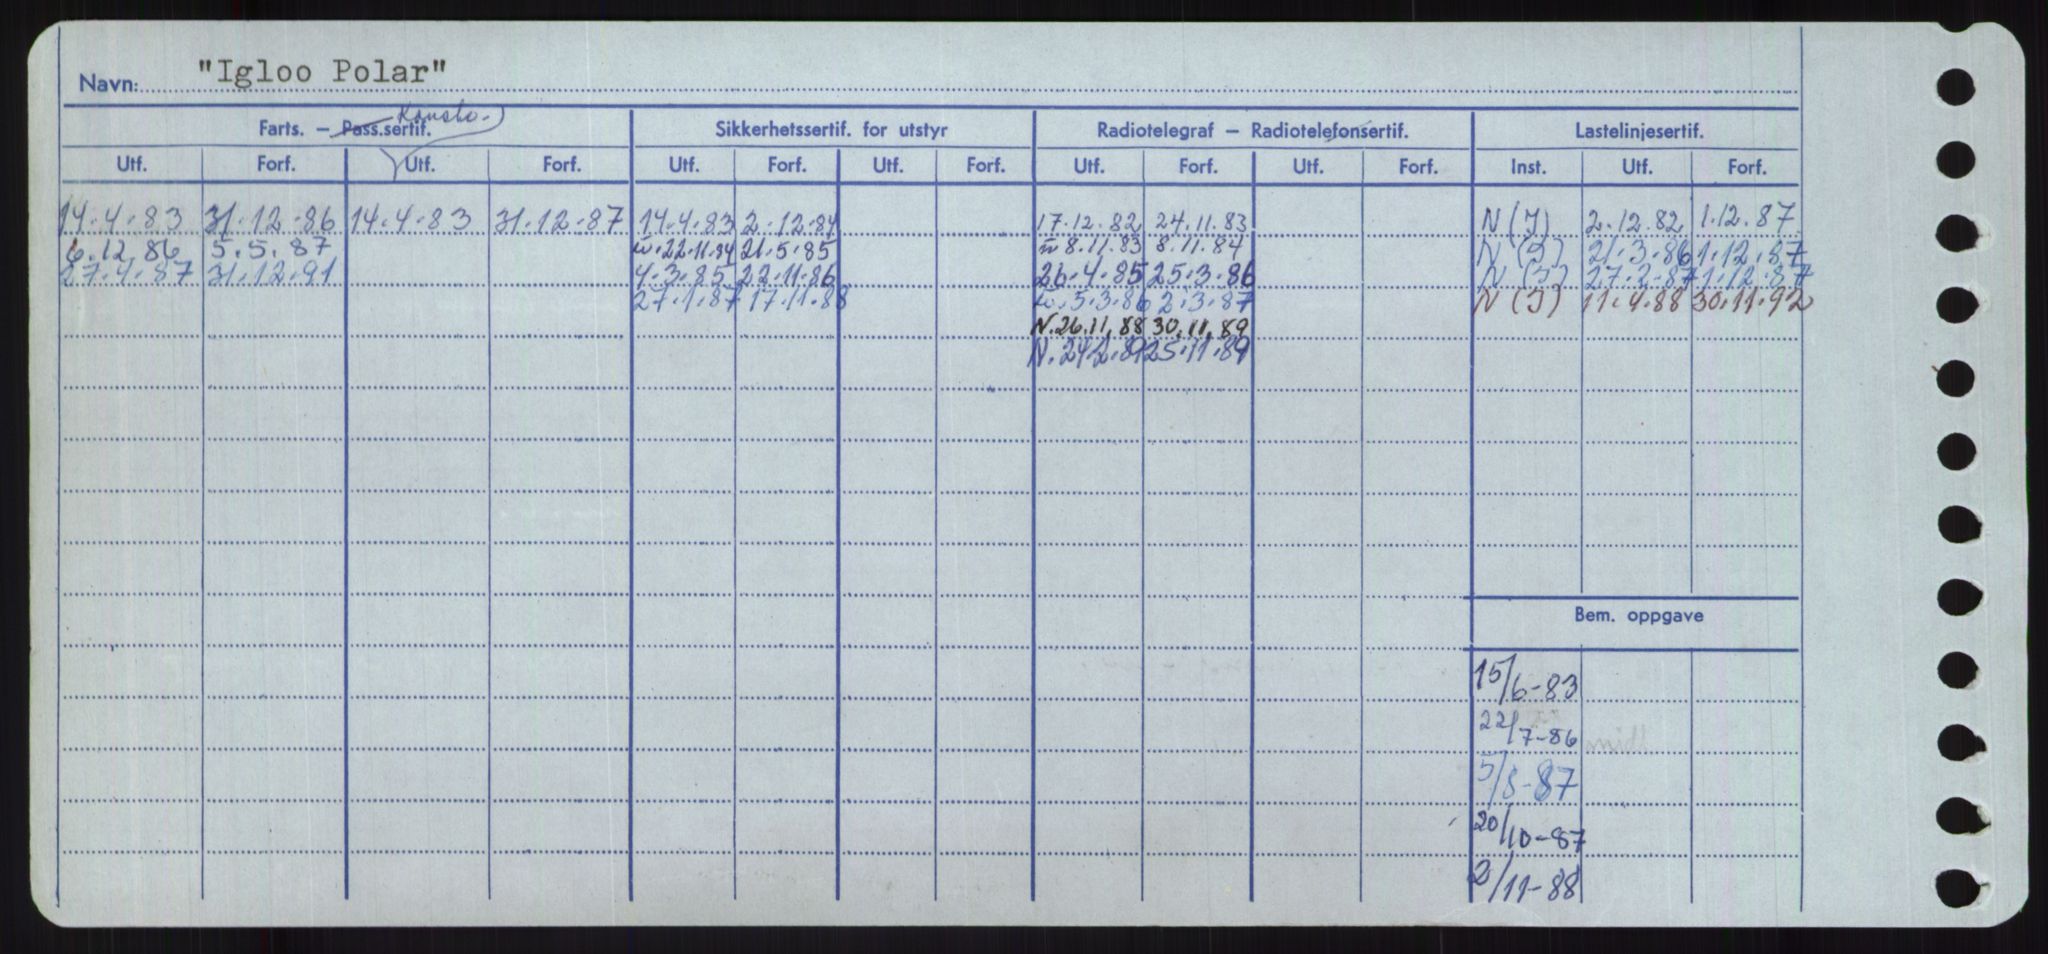 Navn: "Igloo Polar"
Farts. – Pass.sertif. Konstr. Sikkerhetssertif. for utstyr Radiotelegraf – Radiotelefonsertif. Lastelinjesertif.
Utf. Forf. Utf. Forf. Utf. Forf. Utf. Forf. Utf. Forf. Utf. Forf. Inst. Utf. Forf.
14.4.83 31.12.86 14.4.83 31.12.87 14.4.83 2.12.84 17.12.82 24.11.83 N (I) 2.12.82 1.12.87
6.12.86 5.5.87 22.11.84 21.5.85 8.11.83 8.11.84 N (I) 21.3.86 1.12.87
27.4.87 31.12.91 4.3.85 22.11.86 26.4.85 25.3.86 N (I) 27.2.87 1.12.87
27.1.87 17.11.88 5.3.86 2.3.87 N (I) 11.4.88 30.11.92
N.26.11.88 30.11.89
N.24.2.89 25.11.89
Bem. oppgave
15/6-83
22/7-86
5/8-87
20/10-87
2/11-88